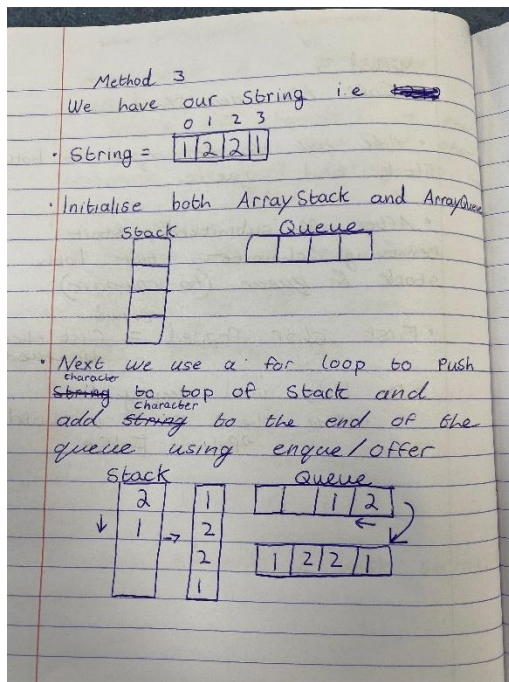 Method 3
We have our String i.e
0 1 2 3
· String = 1 2 2 1
· Initialise both ArrayStack and ArrayQueue
Stack Queue
· Next we use a for loop to Push
character
String to top of Stack and
character
add string to the end of the
queue using enque/offer
Stack Queue
2 1 1 2
1 2
2 1 2 2 1
1